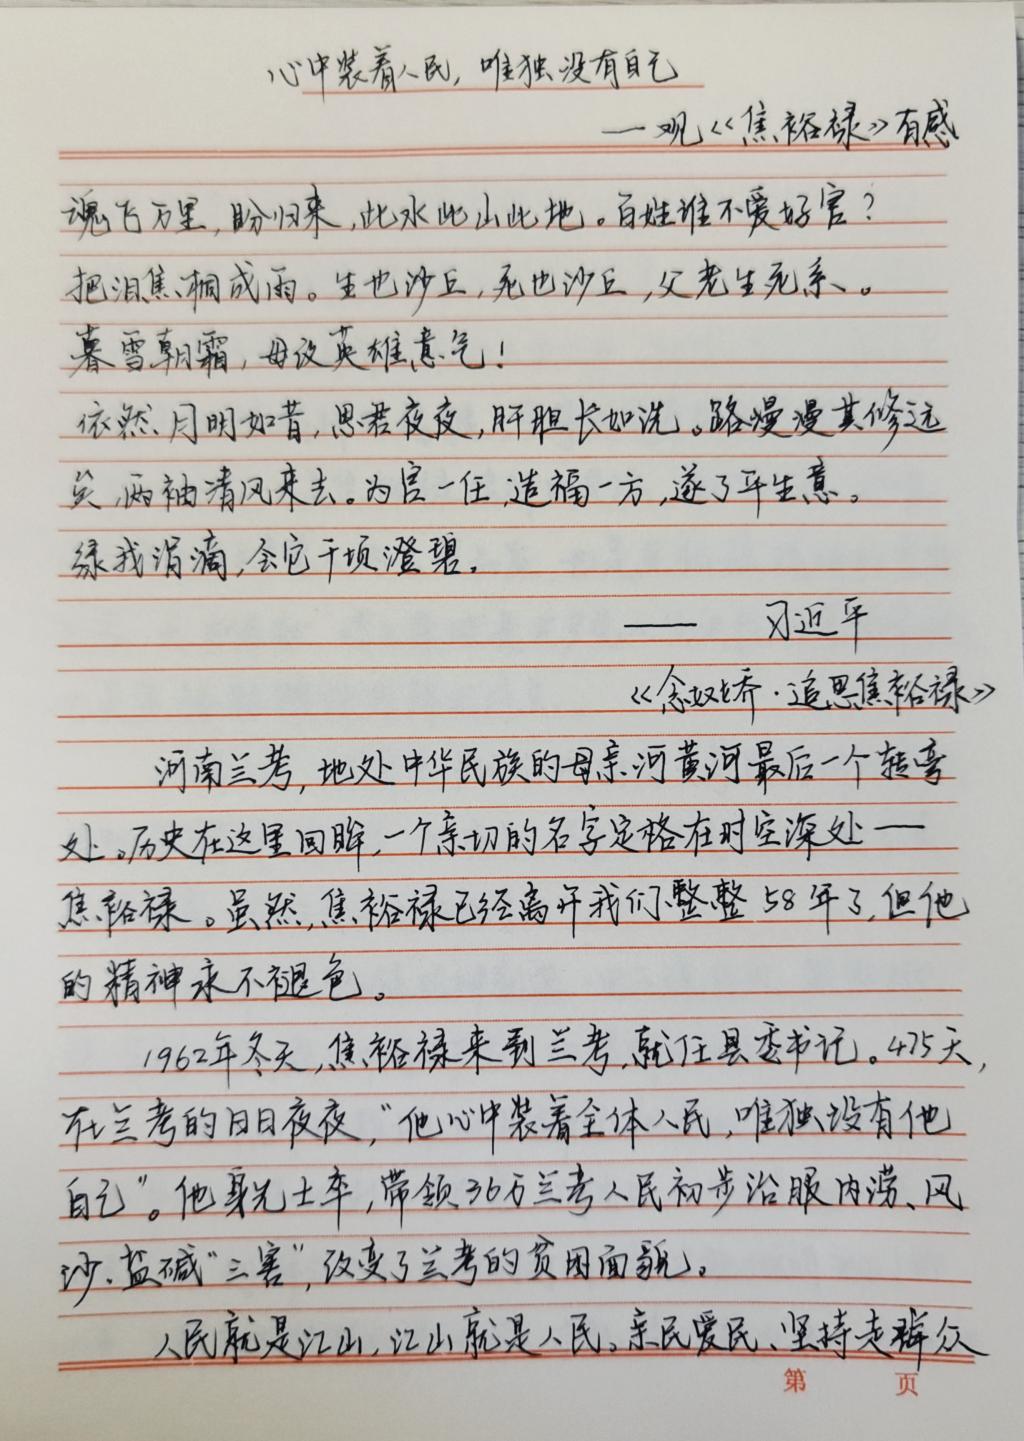 心中装着人民，唯独没有自己
—观《焦裕禄》有感
魂飞万里，盼归来，此水此山此地。百姓谁不爱好官？
把泪焦桐成雨。生也沙丘，死也沙丘，父老生死系。
暮雪朝霜，毋改英雄意气！
依然月明如昔，思君夜夜，肝胆长如洗。路漫漫其修远
矣，两袖清风来去。为官一任，造福一方，遂了平生意。
绿我涓滴，会它千顷澄碧。
—— 习近平
《念奴娇·追思焦裕禄》
河南兰考，地处中华民族的母亲河黄河最后一个转弯
处。历史在这里回眸，一个亲切的名字定格在时空深处——
焦裕禄。虽然，焦裕禄已经离开我们整整58年了，但他
的精神永不褪色。
1962年冬天，焦裕禄来到兰考，就任县委书记。475天，
在兰考的日日夜夜，“他心中装着全体人民，唯独没有他
自己”。他身先士卒，带领36万兰考人民初步治服内涝、风
沙、盐碱“三害”，改变了兰考的贫困面貌。
人民就是江山，江山就是人民。亲民爱民、坚持走群众
第 页